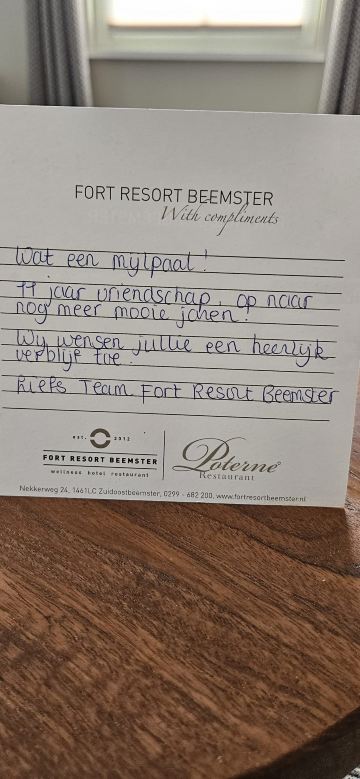 FORT RESORT BEEMSTER
With compliments
Wat een mylpaal!
11 jaar vriendschap, op naar
nog meer mooie jaren!
Wy wensen jullie een heerlyk
verblyf toe.
Liefs Team Fort Resort Beemster
est. 2012
FORT RESORT BEEMSTER
wellness hotel restaurant
Poterne
Restaurant
Nekkerweg 24, 1461LC Zuidoostbeemster, 0299 - 682 200, www.fortresortbeemster.nl